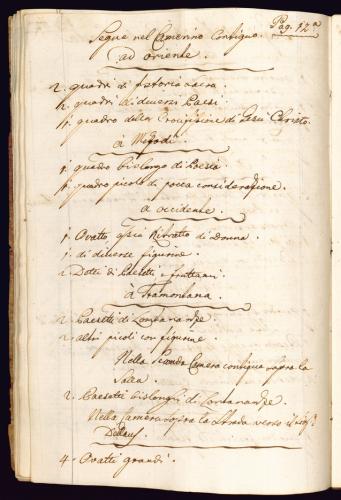 Pag. 12.a
Segue nel Camerino Contiguo
ad oriente.
2. quadri di Istoria Sacra
2. quadri di diversi Paesi
1. quadro della Crocifisione di Gesù Christo.
à Mezodì.
1. quadro bislongo di Poesia
1. quadro picolo di pocca consideratione.
a occidente.
1. Ovatto, ossia Ritratto di Donna
1. di diverse figurine.
2. di Paesetti e
à Tramontana.
2. Paesetti di Lontananze
2. altri picoli con figurine
Nella Seconda Camera contigua sopra la
Sala.
2. Paesetti bislonghi di Lontananze.
Nella Camera sopra la Strada verso il
4. Ovatti grandi.